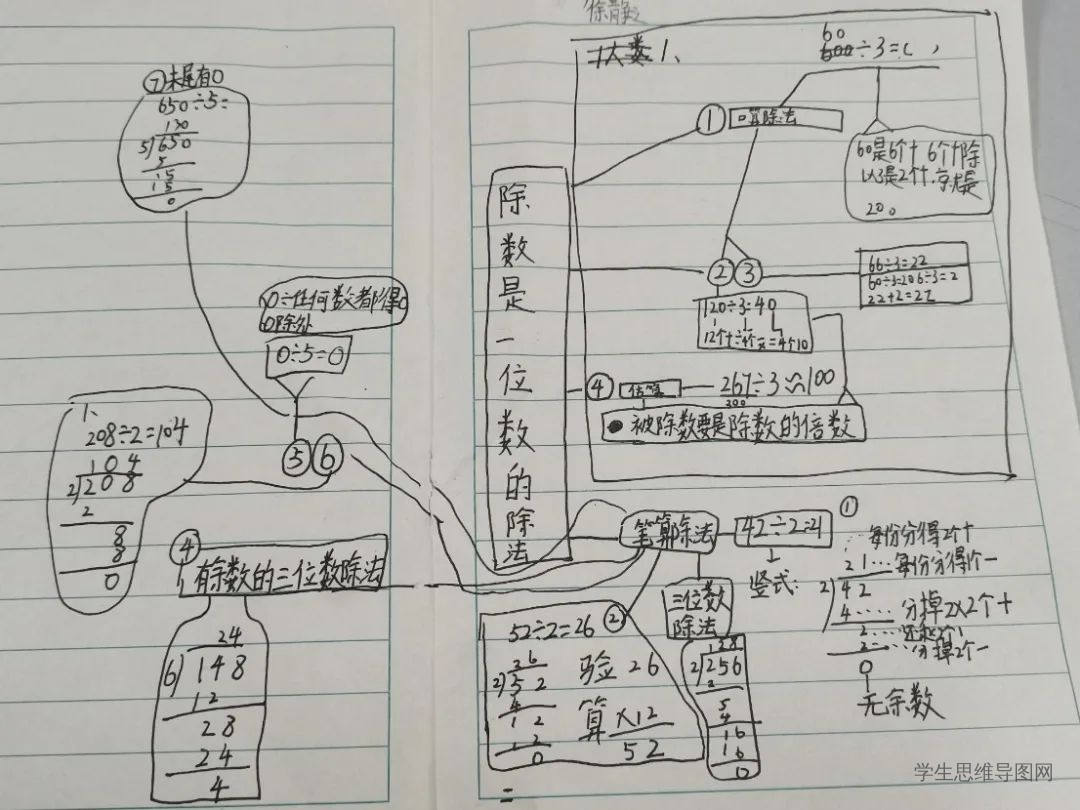 徐静
大类1、
60
600÷3=( )
①口算除法
60是6个十 6个十除
以3是2个十.就是
20。
除数是一位数的除法
②③
66÷3=22
60÷3=20 6÷3=2
22+2=22
120÷3=40
12个十÷
=4个10
④估算
267÷3≈100
300
●被除数要是除数的倍数
⑦末尾有0
650÷5=
130
5)650
5
15
15
0
0÷任何数都得0
0除外
0÷5=0
⑤⑥
1、
208÷2=104
104
2)208
2
8
8
0
④
有余数的三位数除法
24
6)148
12
28
24
4
笔算除法
42÷2=21
①
竖式:
每份分得2个十
21…每份分得1个一
2)42
4…… 分掉2×2个十
2…
2……分掉2个一
0
无余数
②
52÷2=26
26
2)52
4
12
12
0
验算
26
×12
52
三位数
除法
128
2)256
2
5
4
16
16
0
=
学生思维导图网